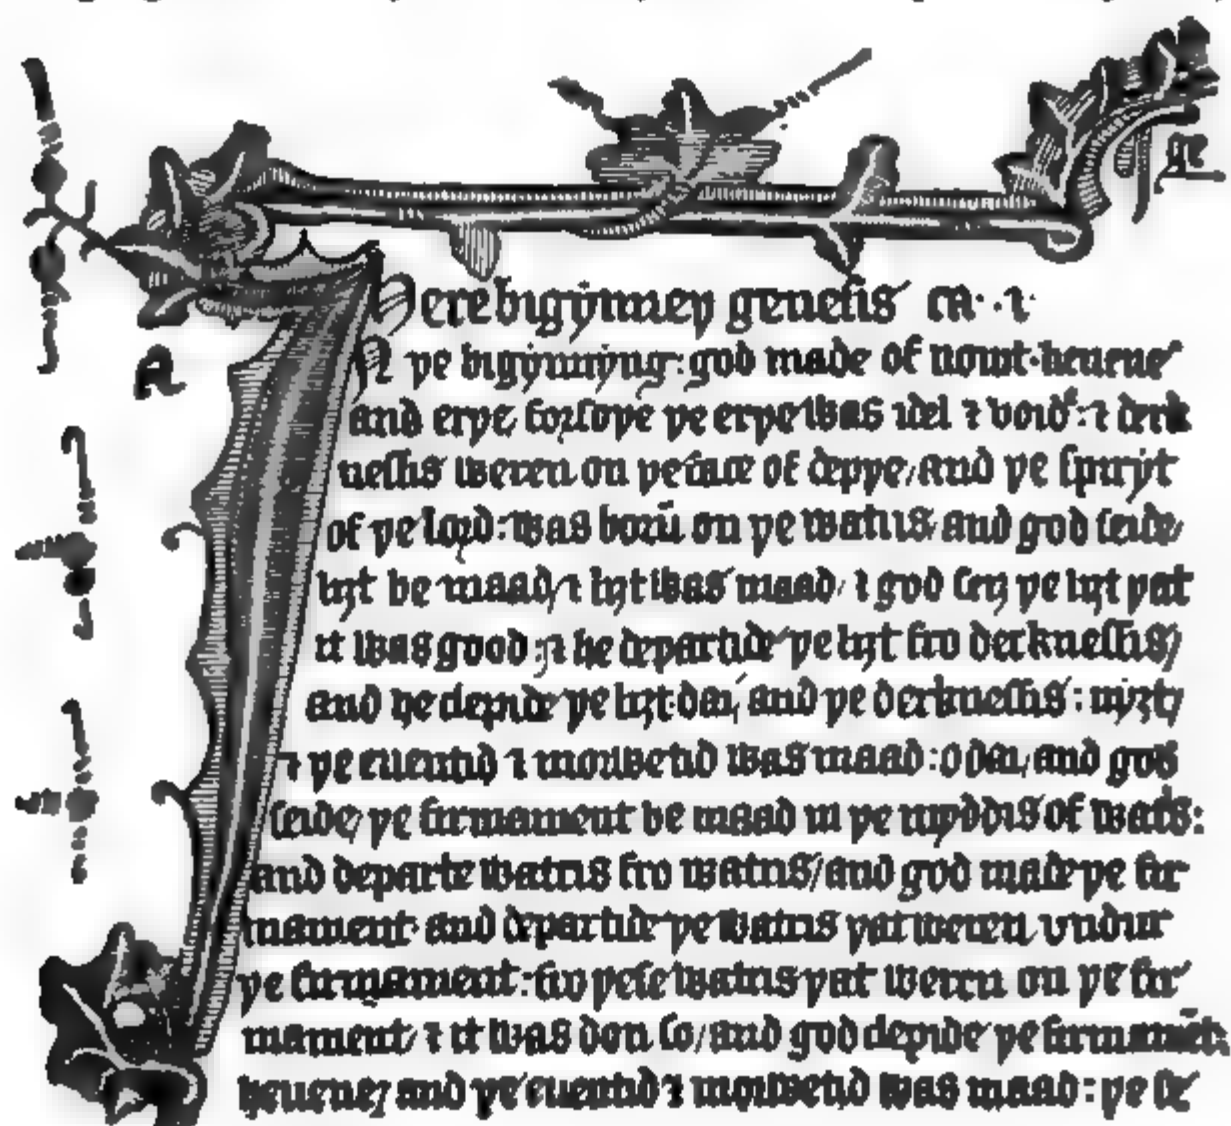 Here bigẏnneþ genesis ca · i ·
N þe bigẏnnẏng : god made of nouȝt · heuene
and erþe / forsoþe þe erþe was idel ⁊ void : ⁊ derk
nessis weren on þe face of depþe / and þe spirẏt
of þe lord : was borū on þe watris / and god seide /
liȝt be maad / ⁊ liȝt was maad / ⁊ god seiȝ þe liȝt þat
it was good : ⁊ he departide þe liȝt fro derknessis /
and he clepide þe liȝt · dai / and þe derknessis : nyȝt /
⁊ þe euentid ⁊ morwetid was maad : o dai / and god
seide / þe firmament be maad in þe myddis of watˢis :
and departe watris fro watris / and god made þe fir
mament · and departide þe watris þat weren vndur
þe firmament : fro þese watris þat weren on þe fir
mament / ⁊ it was don so / and god clepide þe firmamēt ·
heuene / and þe euentid ⁊ morwetid was maad : þe se